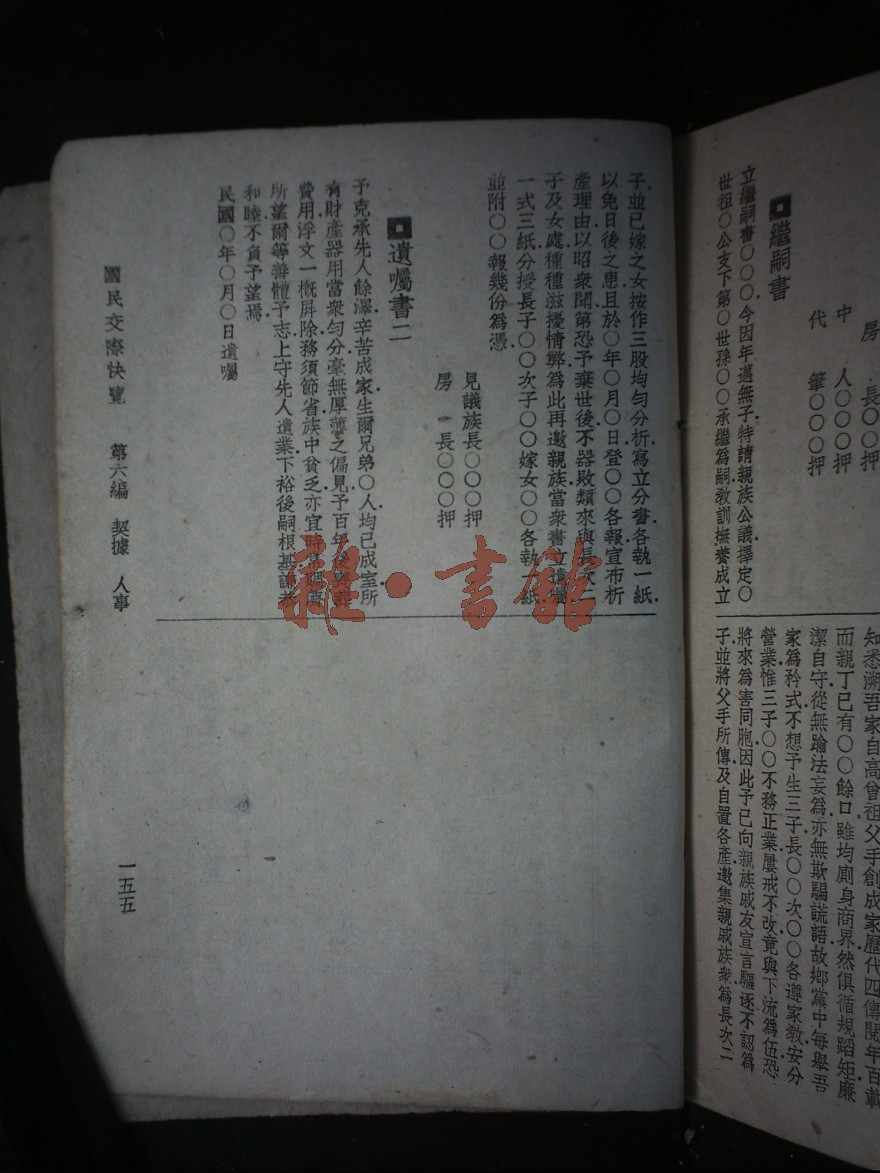 房　長〇〇〇押
中　人〇〇〇押
代　筆〇〇〇押
繼嗣書
立繼嗣書〇〇〇今因年邁無子特請親族公議擇定〇
世祖〇公支下第〇世孫〇〇承繼為嗣教訓撫養成立
知悉溯吾家自高曾祖父手創成家歷代四傳閱年百載
而親丁已有〇〇餘口雖均廁身商界然俱循規蹈矩廉
潔自守從無踰法妄為亦無欺騙謊語故鄉黨中每舉吾
家為矜式不想予生三子長〇〇次〇〇各遵家教安分
營業惟三子〇〇不務正業屢戒不改竟與下流為伍恐
將來為害同胞因此予已向親族戚友宣言驅逐不認為
子並將父手所傳及自置各產邀集親戚族衆為長次二
子並已嫁之女按作三股均勻分析寫立分書各執一紙
以免日後之患且於〇年〇月〇日登〇〇各報宣布析
產理由以昭衆聞第恐予棄世後不器敗類來與長次二
子及女處種種滋擾情弊為此再邀親族當衆書立遺囑
一式三紙分授長子〇〇次子〇〇嫁女〇〇各執一紙
並附〇〇報幾份為憑
見議族長〇〇〇押
房　長〇〇〇押
遺囑書二
予克承先人餘澤辛苦成家生爾兄弟〇人均已成室所
有財產器用當衆勻分毫無厚薄之偏見予百年後喪葬
費用浮文一概屏除務須節省族中貧乏亦宜時常
所望爾等善體予志上守先人遺業下裕後嗣根基
和睦不負予望焉
民國〇年〇月〇日遺囑
國民交際快覽　第六編　契據　人事
一五五
雜·書館